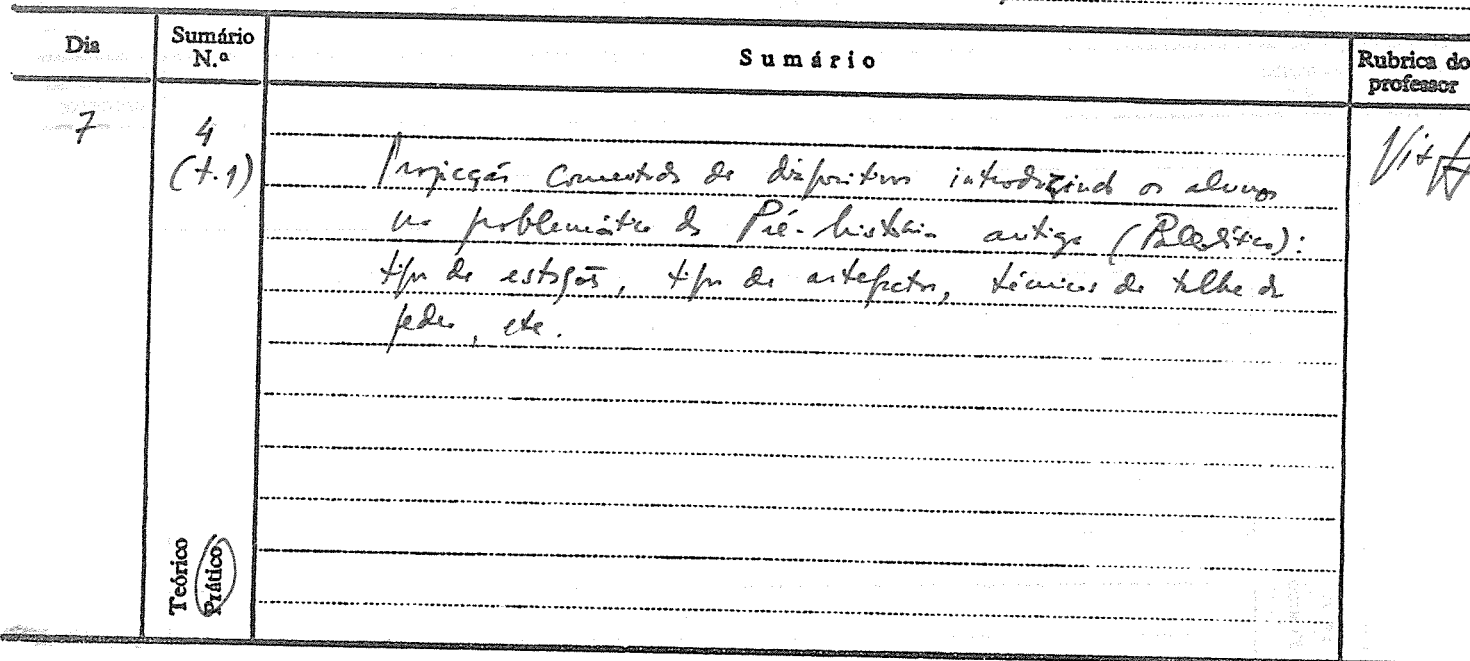 Dia
Sumário N.º
Sumário
Rubrica do professor
7
4
(t.1)
Projecção comentada de diapositivos introduzindo os alunos
na problemática da Pré-história antiga (Paleolítico):
tipos de estações, tipos de artefactos, técnicas de talhe da
pedra, etc.
Teórico
Prático